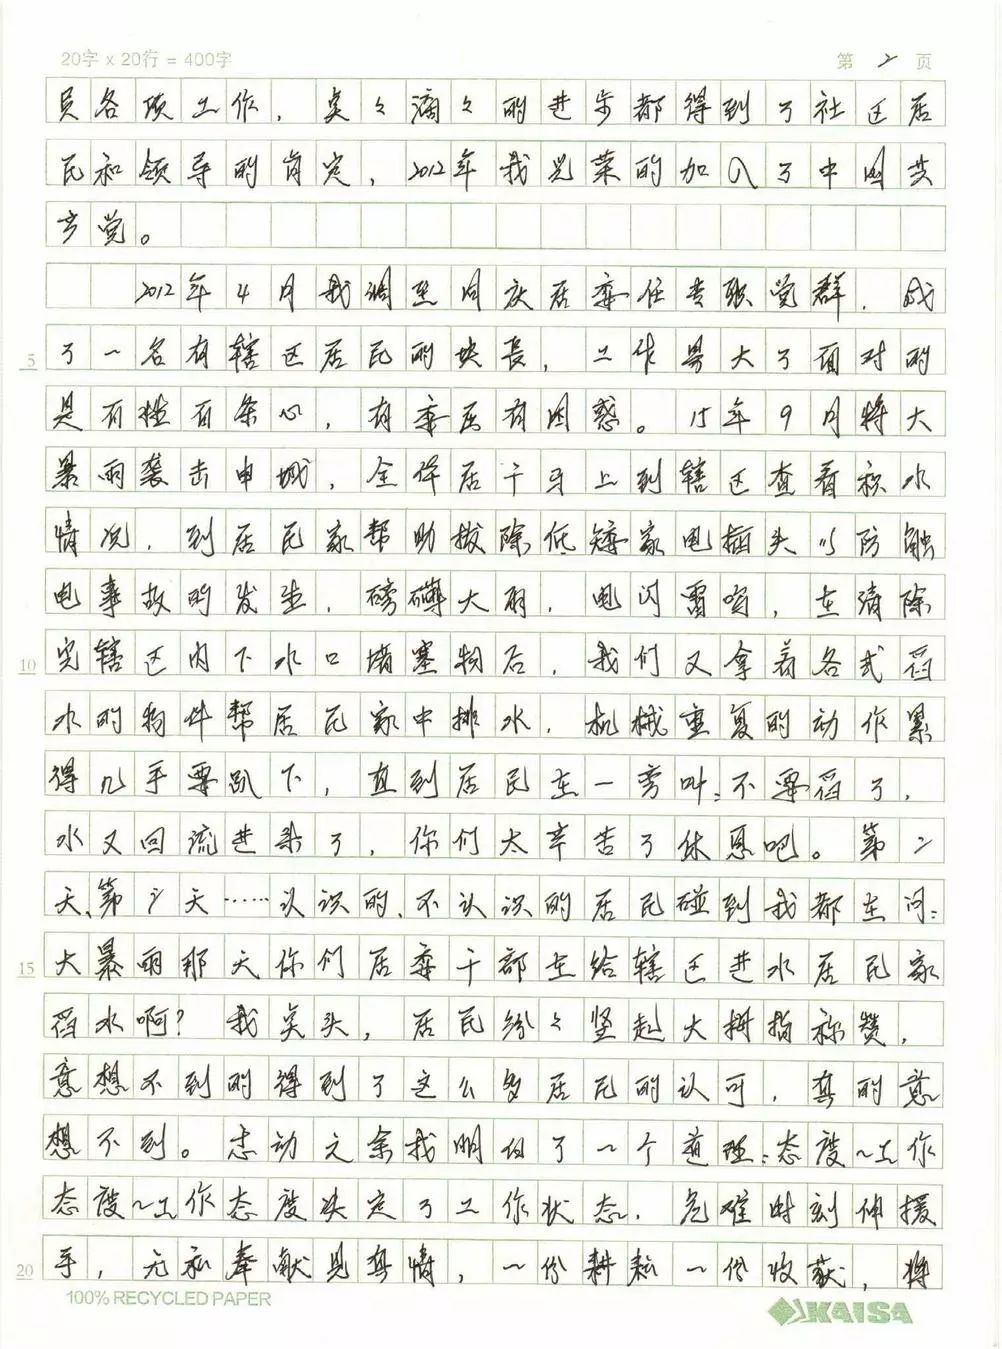 20字 x 20行 = 400字
第 2 页
员各项工作，点々滴々的进步都得到了社区居
民和领导的肯定，2012年我光荣的加入了中国共
产党。
2012年4月我调至同庆居委任专职党群，成
了一名有辖区居民的块长，工作量大了面对的
是百姓百条心，有委屈有困惑。15年9月特大
暴雨袭击申城，全体居干马上到辖区查看积水
情况，到居民家帮助拔除低矮家电插头以防触
5
电事故的发生，磅礴大雨，电闪雷鸣，在清除
完辖区内下水口堵塞物后，我们又拿着各式舀
10
水的物件帮居民家中排水，机械重复的动作累
得几乎要趴下，直到居民在一旁叫：不要舀了，
水又回流进来了，你们太辛苦了休息吧。第2
天、第3天……认识的、不认识的居民碰到我都在问：
大暴雨那天你们居委干部在给辖区进水居民家
15
舀水啊？我点头，居民纷々竖起大拇指称赞，
意想不到的得到了这么多居民的认可，真的意
想不到。感动之余我明白了一个道理：态度~工作
态度~工作态度决定了工作状态，危难时刻伸援
手，无私奉献见真情，一份耕耘一份收获，将
20
100% RECYCLED PAPER
KAISA